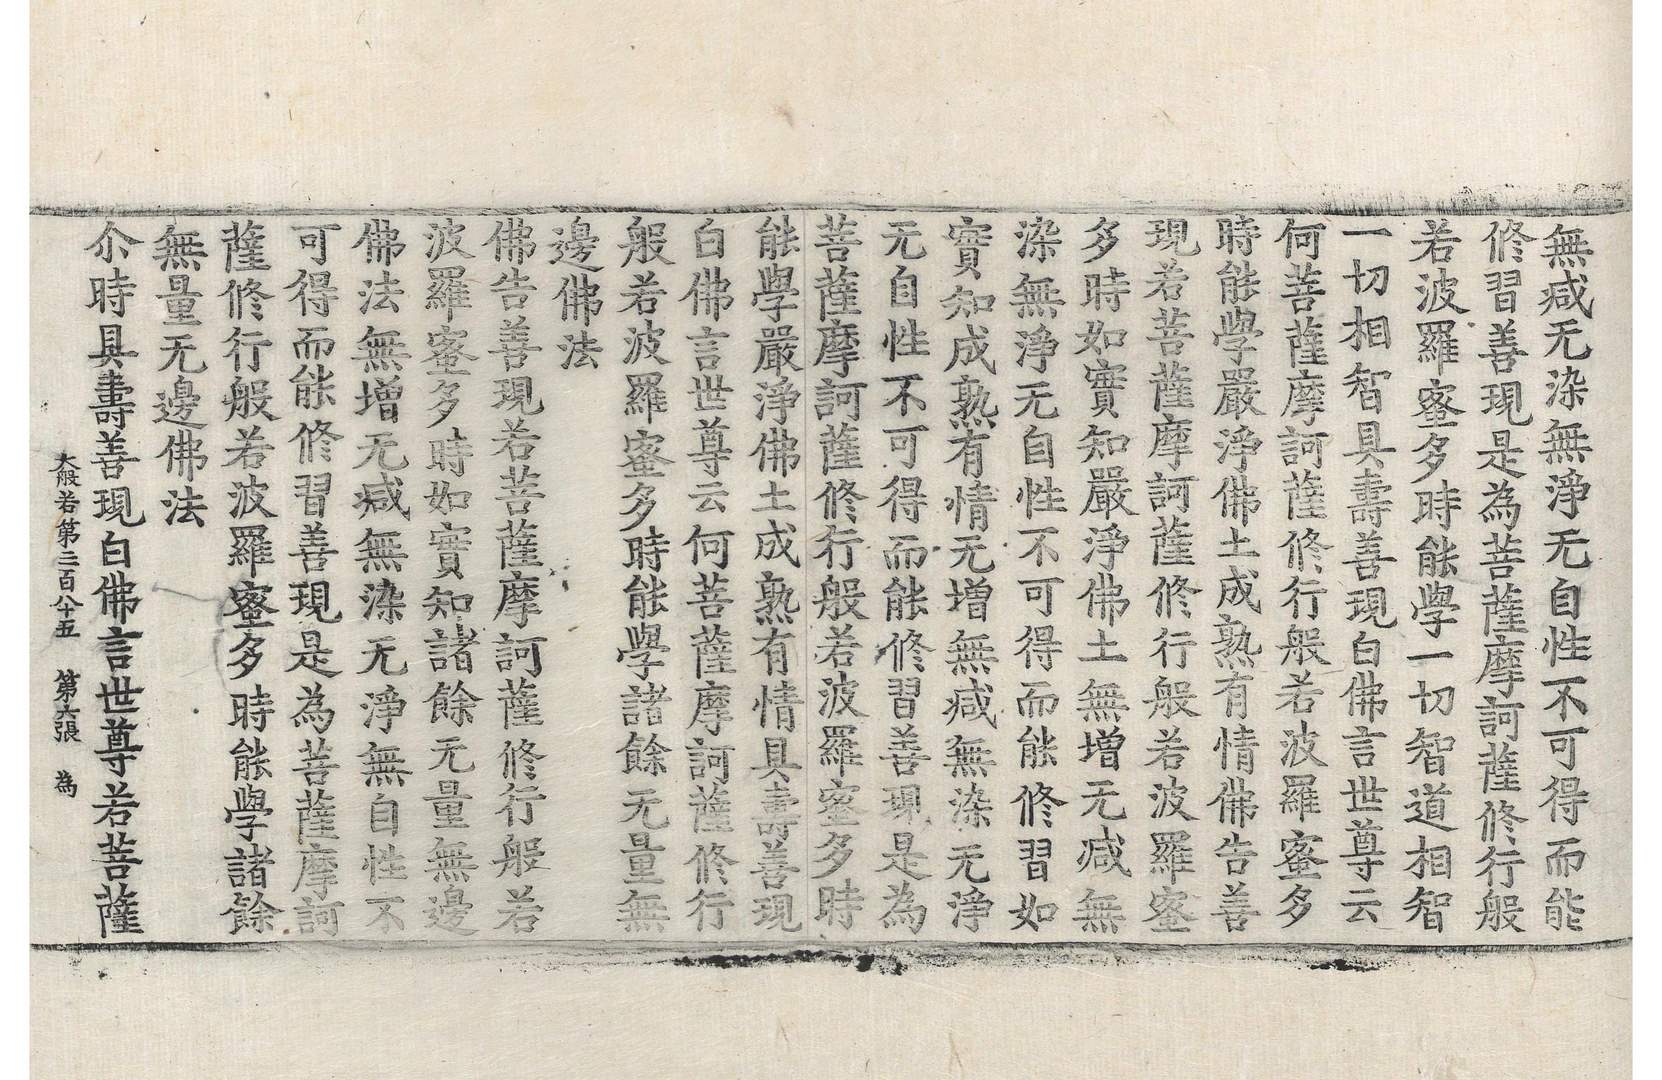 無减无染無淨无自性不可得而能
修習善現是為菩薩摩訶薩修行般
若波羅蜜多時能學一切智道相智
一切相智具壽善現白佛言世尊云
何菩薩摩訶薩修行般若波羅蜜多
時能學嚴淨佛土成熟有情佛告善
現若菩薩摩訶薩修行般若波羅蜜
多時如實知嚴淨佛土無增无减無
染無淨无自性不可得而能修習如
實知成熟有情无增無减無染无淨
无自性不可得而能修習善現是為
菩薩摩訶薩修行般若波羅蜜多時
能學嚴淨佛土成熟有情具壽善現
白佛言世尊云何菩薩摩訶薩修行
般若波羅蜜多時能學諸餘无量無
邊佛法
佛告善現若菩薩摩訶薩修行般若
波羅蜜多時如實知諸餘无量無邊
佛法無增无减無染无淨無自性不
可得而能修習善現是為菩薩摩訶
薩修行般若波羅蜜多時能學諸餘
無量无邊佛法
尒時具壽善現白佛言世尊若菩薩
大般若第三百八十五 第六張 為